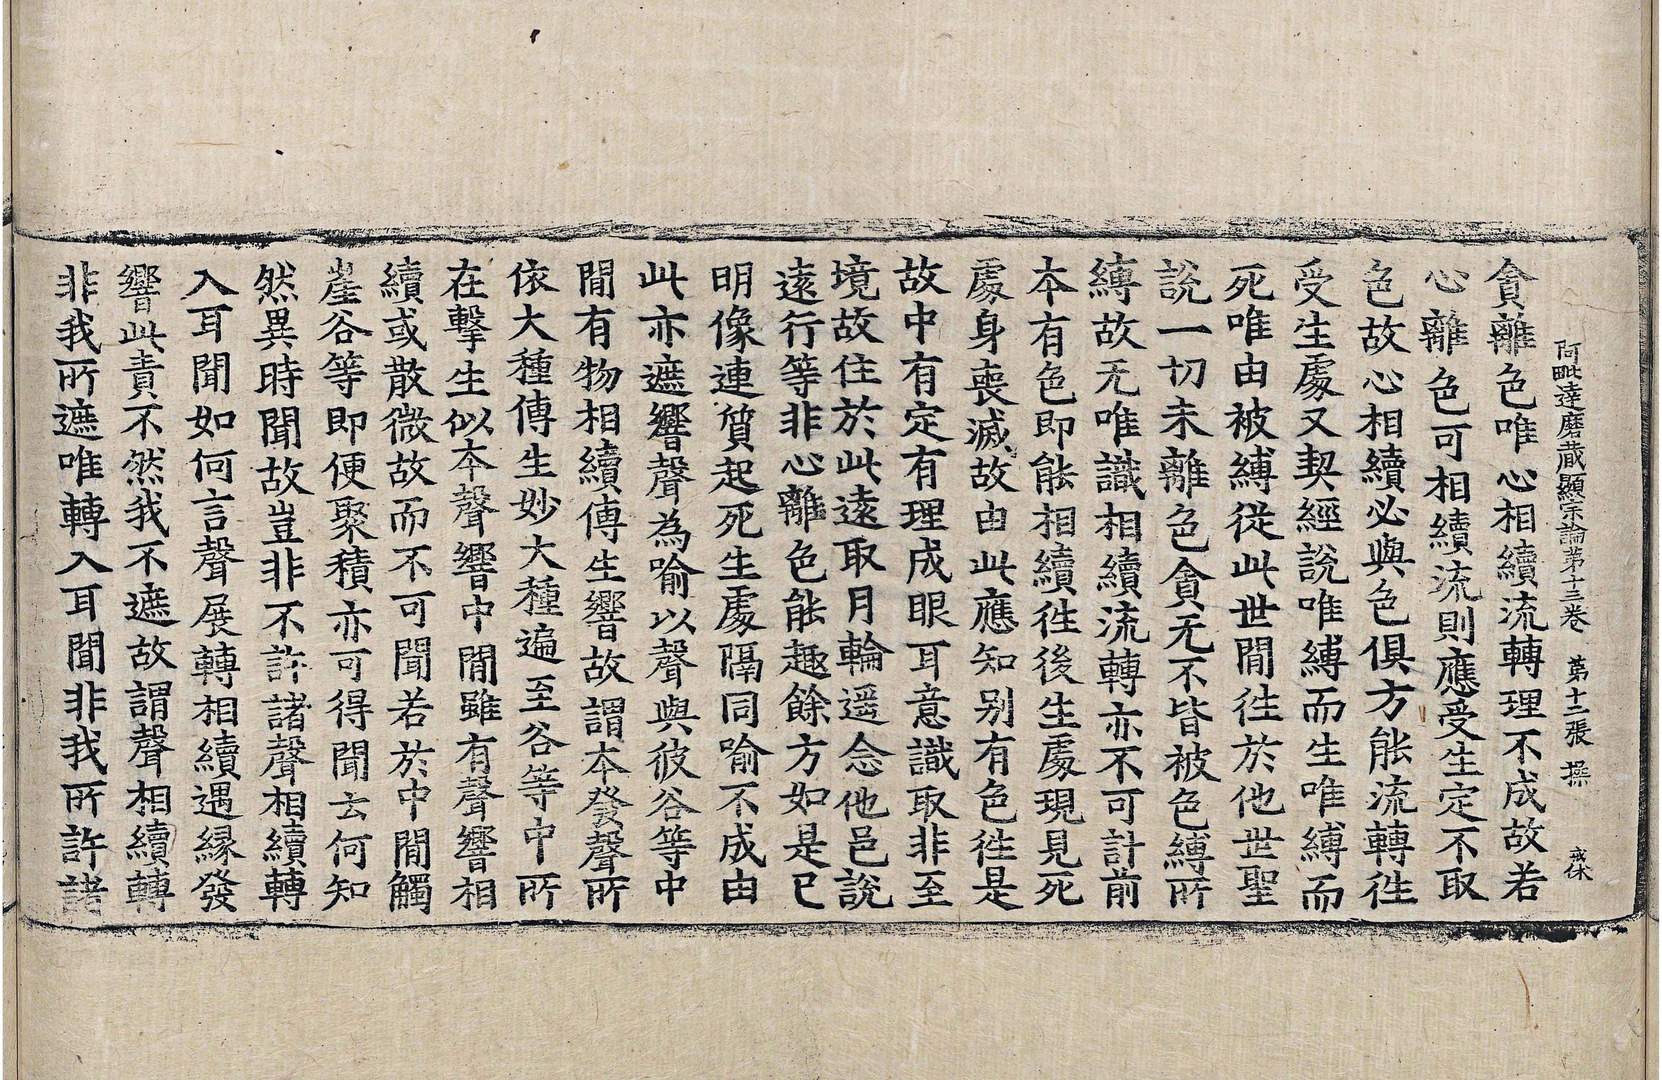 阿毗達磨藏顯宗論第十三卷 第十二張 操 戒休
貪離色唯心相續流轉理不成故若
心離色可相續流則應受生定不取
色故心相續必與色俱方能流轉徃
受生處又契經說唯縛而生唯縛而
死唯由被縛從此世閒徃於他世聖
說一切未離色貪无不皆被色縛所
縛故无唯識相續流轉亦不可計前
本有色即能相續徃後生處現見死
處身喪滅故由此應知别有色徃是
故中有定有理成眼耳意識取非至
境故住於此遠取月輪遥念他邑說
遠行等非心離色能趣餘方如是已
明像連質起死生處隔同喻不成由
此亦遮響聲為喻以聲與彼谷等中
閒有物相續傳生響故謂本發聲所
依大種傳生妙大種遍至谷等中所
在擊生似本聲響中閒雖有聲響相
續或散微故而不可聞若於中閒觸
崖谷等即便聚積亦可得聞云何知
然異時聞故豈非不許諸聲相續轉
入耳聞如何言聲展轉相續遇緣發
響此責不然我不遮故謂聲相續轉
非我所遮唯轉入耳聞非我所許諸